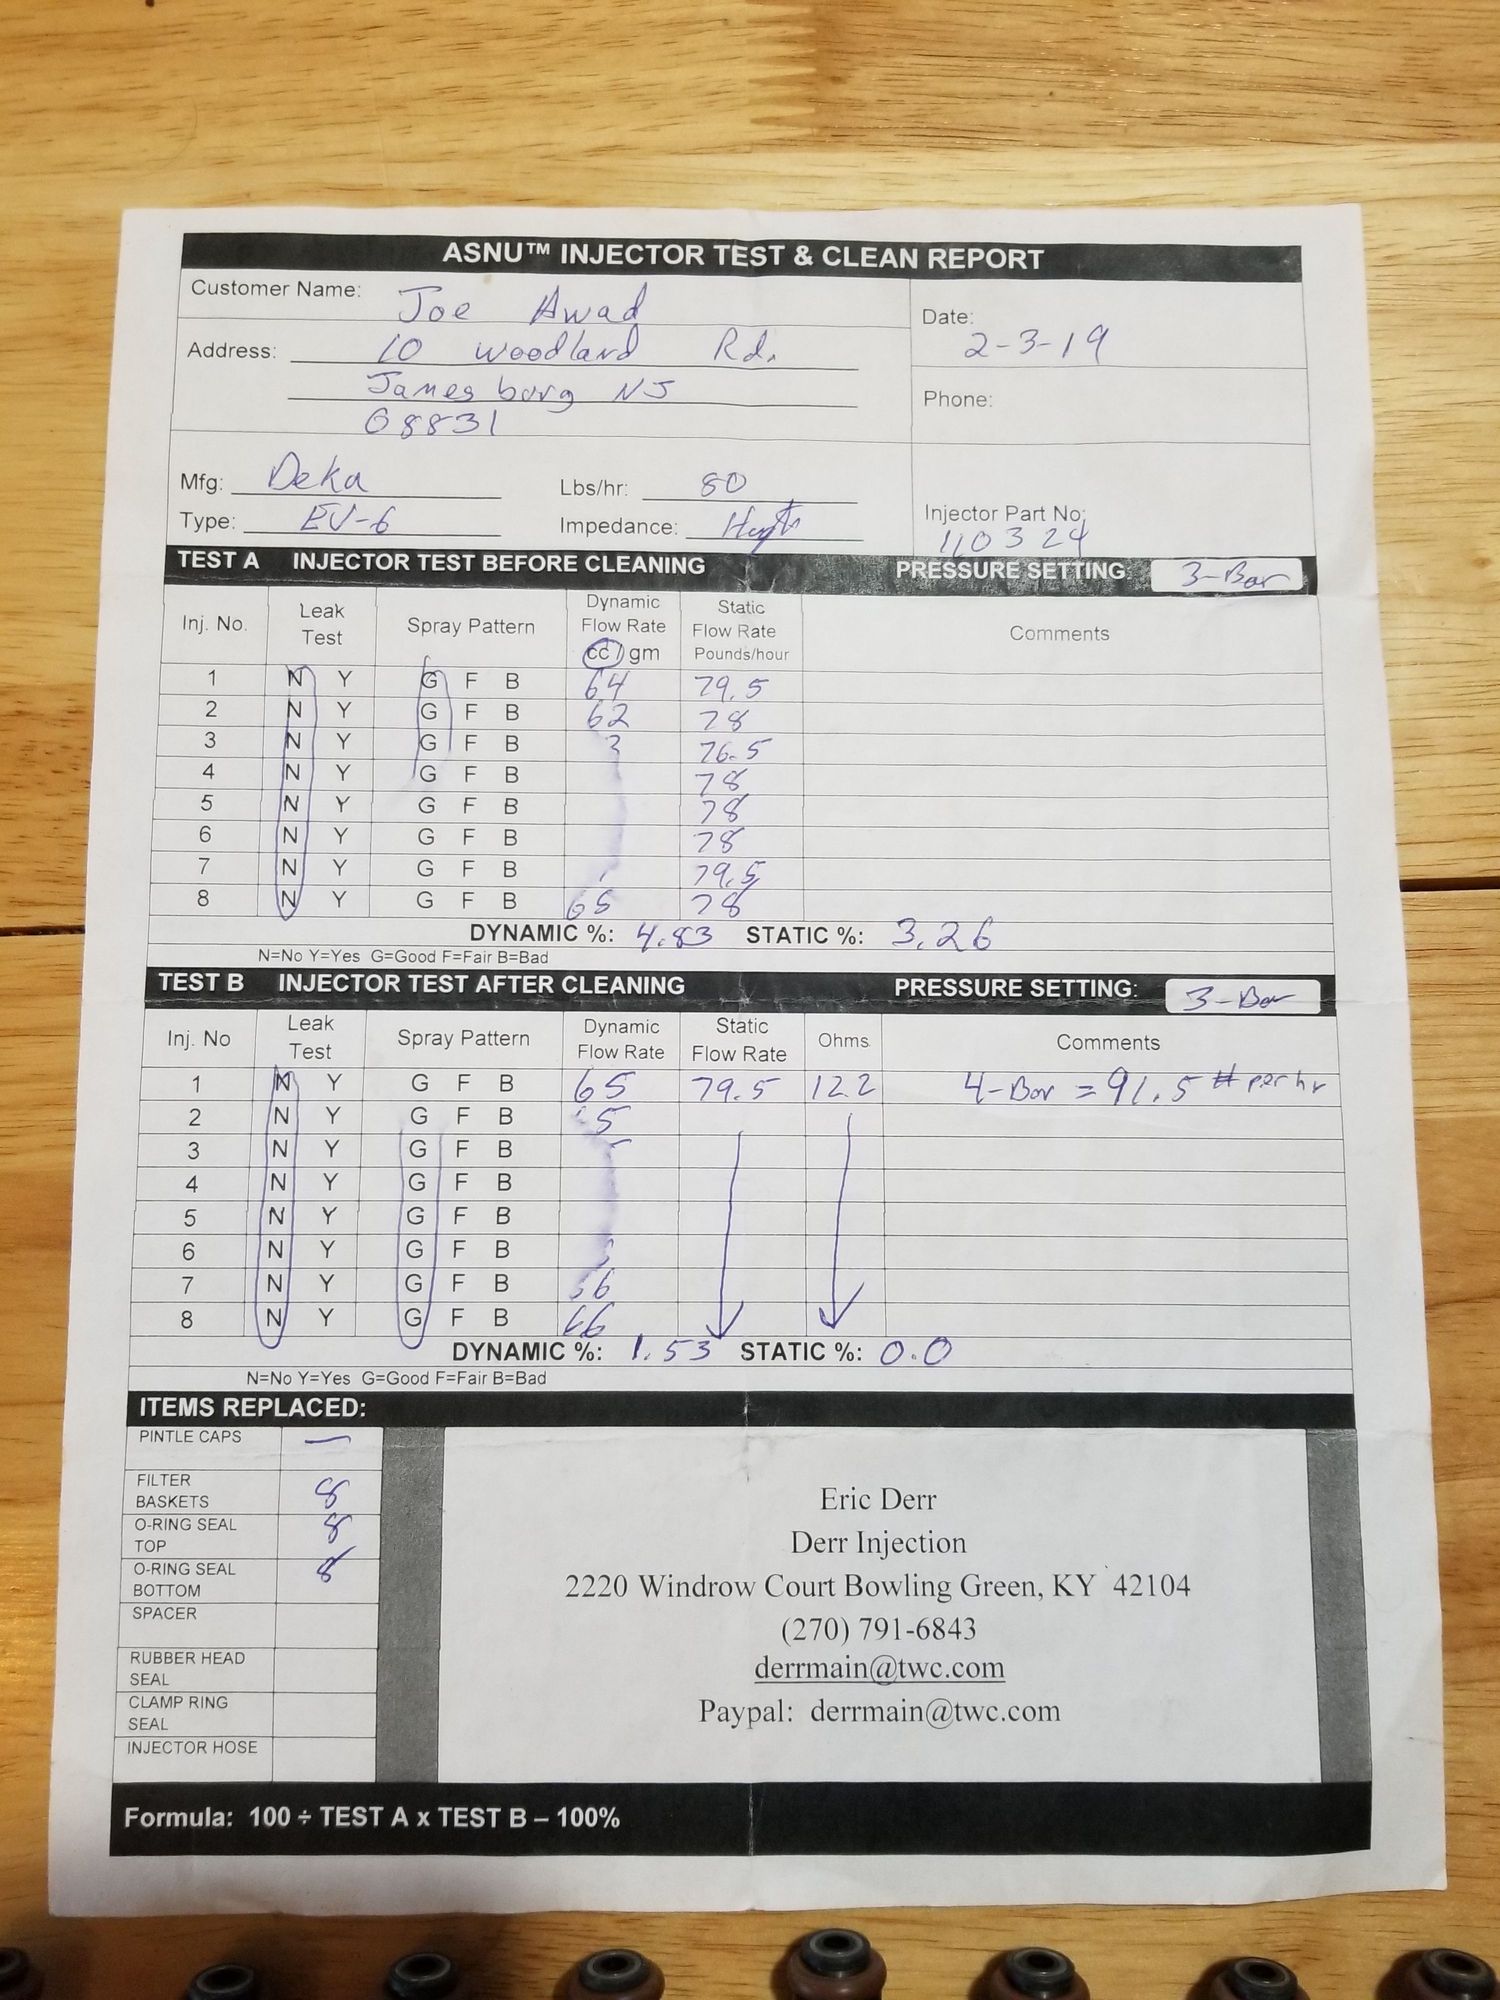 ASNU™ INJECTOR TEST & CLEAN REPORT
Customer Name: Joe Awad
Date: 2-3-19
Address: 10 Woodland Rd.
Jamesburg NJ
08831
Phone:
Mfg: Deka Lbs/hr: 80
Type: EV-6 Impedance: High
Injector Part No: 110324
TEST A INJECTOR TEST BEFORE CLEANING PRESSURE SETTING 3-Bar
Inj. No. Leak Test Spray Pattern Dynamic Flow Rate cc / gm Static Flow Rate Pounds/hour Comments
1 N Y G F B 64 79.5
2 N Y G F B 62 78
3 N Y G F B 76.5
4 N Y G F B 78
5 N Y G F B 78
6 N Y G F B 78
7 N Y G F B 79.5
8 N Y G F B 65 78
DYNAMIC %: 4.83 STATIC %: 3.26
N=No Y=Yes G=Good F=Fair B=Bad
TEST B INJECTOR TEST AFTER CLEANING PRESSURE SETTING: 3-Bar
Inj. No Leak Test Spray Pattern Dynamic Flow Rate Static Flow Rate Ohms Comments
1 N Y G F B 65 79.5 12.2 4-Bar = 91.5 # per hr
2 N Y G F B
3 N Y G F B
4 N Y G F B
5 N Y G F B
6 N Y G F B
7 N Y G F B
8 N Y G F B 66
DYNAMIC %: 1.53 STATIC %: 0.0
N=No Y=Yes G=Good F=Fair B=Bad
ITEMS REPLACED:
PINTLE CAPS —
FILTER BASKETS 8
O-RING SEAL TOP 8
O-RING SEAL BOTTOM 8
SPACER
RUBBER HEAD SEAL
CLAMP RING SEAL
INJECTOR HOSE
Eric Derr
Derr Injection
2220 Windrow Court Bowling Green, KY 42104
(270) 791-6843
derrmain@twc.com
Paypal: derrmain@twc.com
Formula: 100 ÷ TEST A x TEST B – 100%